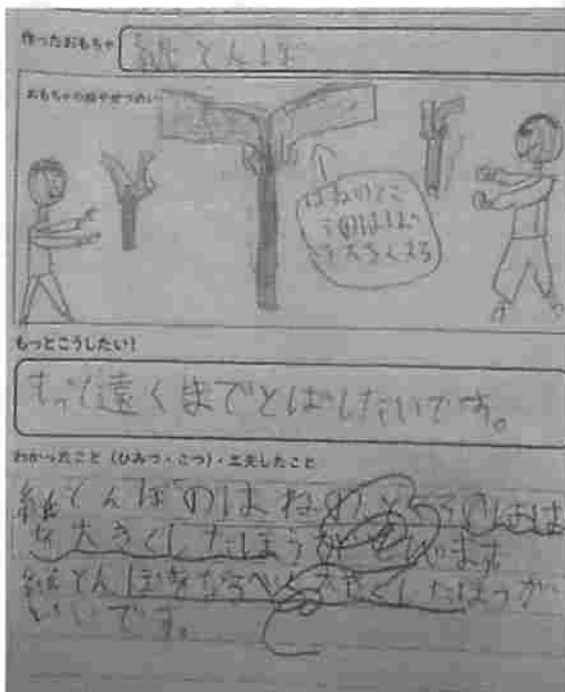 作ったおもちゃ
紙とんぼ
おもちゃの絵やせつめい
はねのとこ
ろのはば
を大きくする
もっとこうしたい!
もっと遠くまでとばしたいです。
わかったこと(ひみつ・こつ)・工夫したこと
紙とんぼのはねのところのはば
を大きくしたほうが います
紙とんぼをなるべく くしたほうが
いいです。